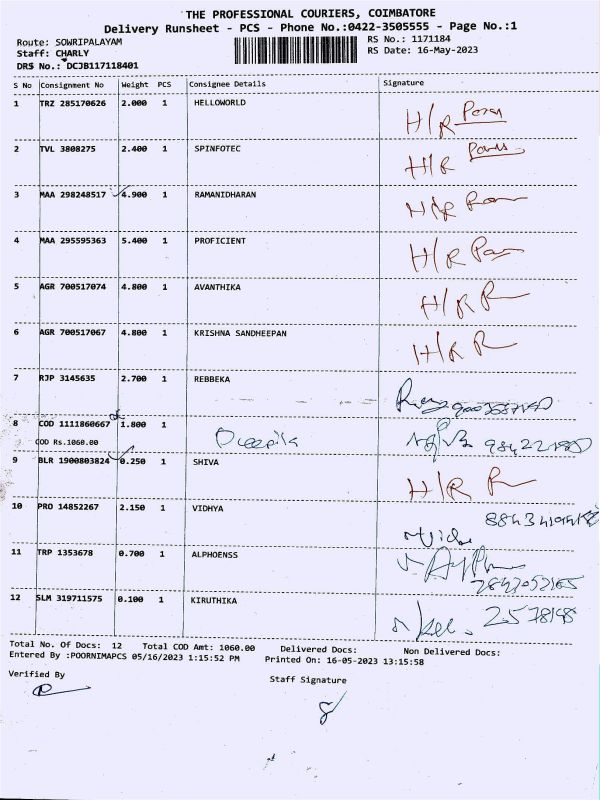 THE PROFESSIONAL COURIERS, COIMBATORE
Delivery Runsheet - PCS - Phone No.:0422-3505555 - Page No.:1
Route: SOWRIPALAYAM
RS No.: 1171184
Staff: CHARLY
RS Date: 16-May-2023
DRS No.: DCJB117118401
S No Consignment No Weight PCS Consignee Details Signature
1 TRZ 285170626 2.000 1 HELLOWORLD
H/R
2 TVL 3808275 2.400 1 SPINFOTEC
H/R
3 MAA 298248517 4.900 1 RAMANIDHARAN
H/R
4 MAA 295595363 5.400 1 PROFICIENT
H/R
5 AGR 700517074 4.800 1 AVANTHIKA
H/R R
6 AGR 700517067 4.800 1 KRISHNA SANDHEEPAN
H/R R
7 RJP 3145635 2.700 1 REBBEKA
8 COD 1111860667 1.800 1
COD Rs.1060.00 Deepika
9 BLR 1900803824 0.250 1 SHIVA
H/R R
10 PRO 14852267 2.150 1 VIDHYA
11 TRP 1353678 0.700 1 ALPHOENSS
12 SLM 319711575 0.100 1 KIRUTHIKA
Total No. Of Docs: 12 Total COD Amt: 1060.00 Delivered Docs: Non Delivered Docs:
Entered By :POORNIMAPCS 05/16/2023 1:15:52 PM Printed On: 16-05-2023 13:15:58
Verified By
Staff Signature